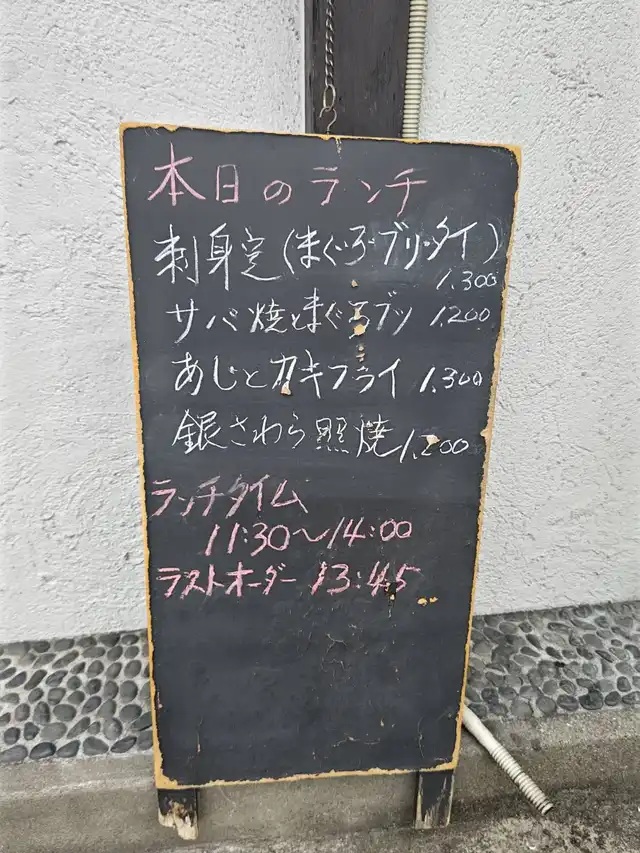 本日のランチ
刺身定(まぐろ・ブリ・タイ)
1.300
サバ焼とまぐろブツ 1.200
あじとカキフライ 1.300
銀さわら照焼 1.200
ランチタイム
11:30〜14:00
ラストオーダー 13:45